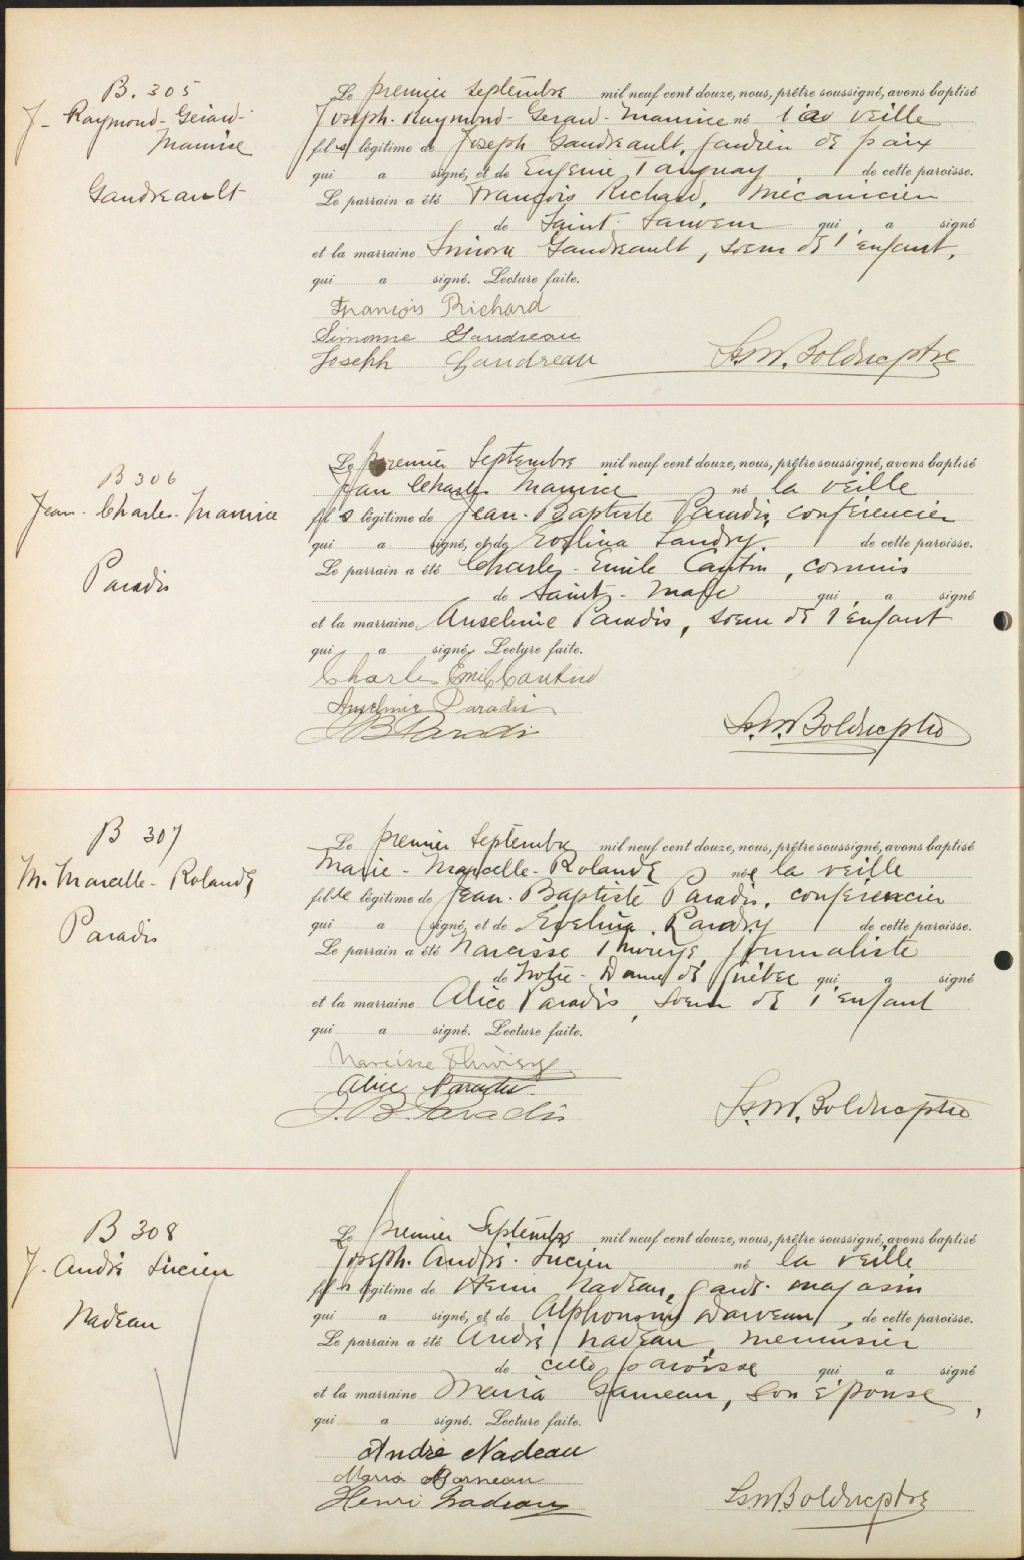 B. 305
J. Raymond-Gérard-
Maurice
Gaudreault
Le premier septembre mil neuf cent douze, nous, prêtre soussigné, avons baptisé
Joseph-Raymond-Gérard-Maurice né la veille
fils légitime de Joseph Gaudreault, gardien de paix
qui a signé, et de Eugénie Tanguay de cette paroisse.
Le parrain a été François Richard, mécanicien
de Saint-Sauveur qui a signé
et la marraine Simone Gaudreault, soeur de l'enfant,
qui a signé. Lecture faite.
François Richard
Simonne Gaudreau
Joseph Gaudreau
B 306
Jean-Charles-Maurice
Paradis
Le premier Septembre mil neuf cent douze, nous, prêtre soussigné, avons baptisé
Jean Charles Maurice né la veille
fils légitime de Jean-Baptiste Paradis, conférencier
qui a signé, et de Evelina Landry de cette paroisse.
Le parrain a été Charles-Emile Cantin, commis
de Saint-Malo qui a signé
et la marraine Anselmie Paradis, soeur de l'enfant
qui a signé. Lecture faite.
Charles Emile Cantin
Anselmie Paradis
J B Paradis
Ls. M. Bolduc ptre
B 307
M. Marcelle-Rolande
Paradis
Le premier Septembre mil neuf cent douze, nous, prêtre soussigné, avons baptisé
Marie-Marcelle-Rolande née la veille
fille légitime de Jean-Baptiste Paradis, conférencier
qui a signé, et de Evelina Landry de cette paroisse.
Le parrain a été Narcisse Thivierge, journaliste
de Notre-Dame de Québec qui a signé
et la marraine Alice Paradis, soeur de l'enfant
qui a signé. Lecture faite.
Narcisse Thivierge
Alice Paradis
J. B. Paradis
Ls. M. Bolduc ptre
B 308
J. André Lucien
Nadeau
Le premier Septembre mil neuf cent douze, nous, prêtre soussigné, avons baptisé
Joseph-André-Lucien né la veille
fils légitime de Henri Nadeau, garde-magasin
qui a signé, et de Alphonsine Darveau, de cette paroisse.
Le parrain a été André Nadeau, menuisier
de cette paroisse qui a signé
et la marraine Maria Garneau, son épouse,
qui a signé. Lecture faite.
André Nadeau
Maria Garneau
Henri Nadeau
Ls M Bolduc ptre